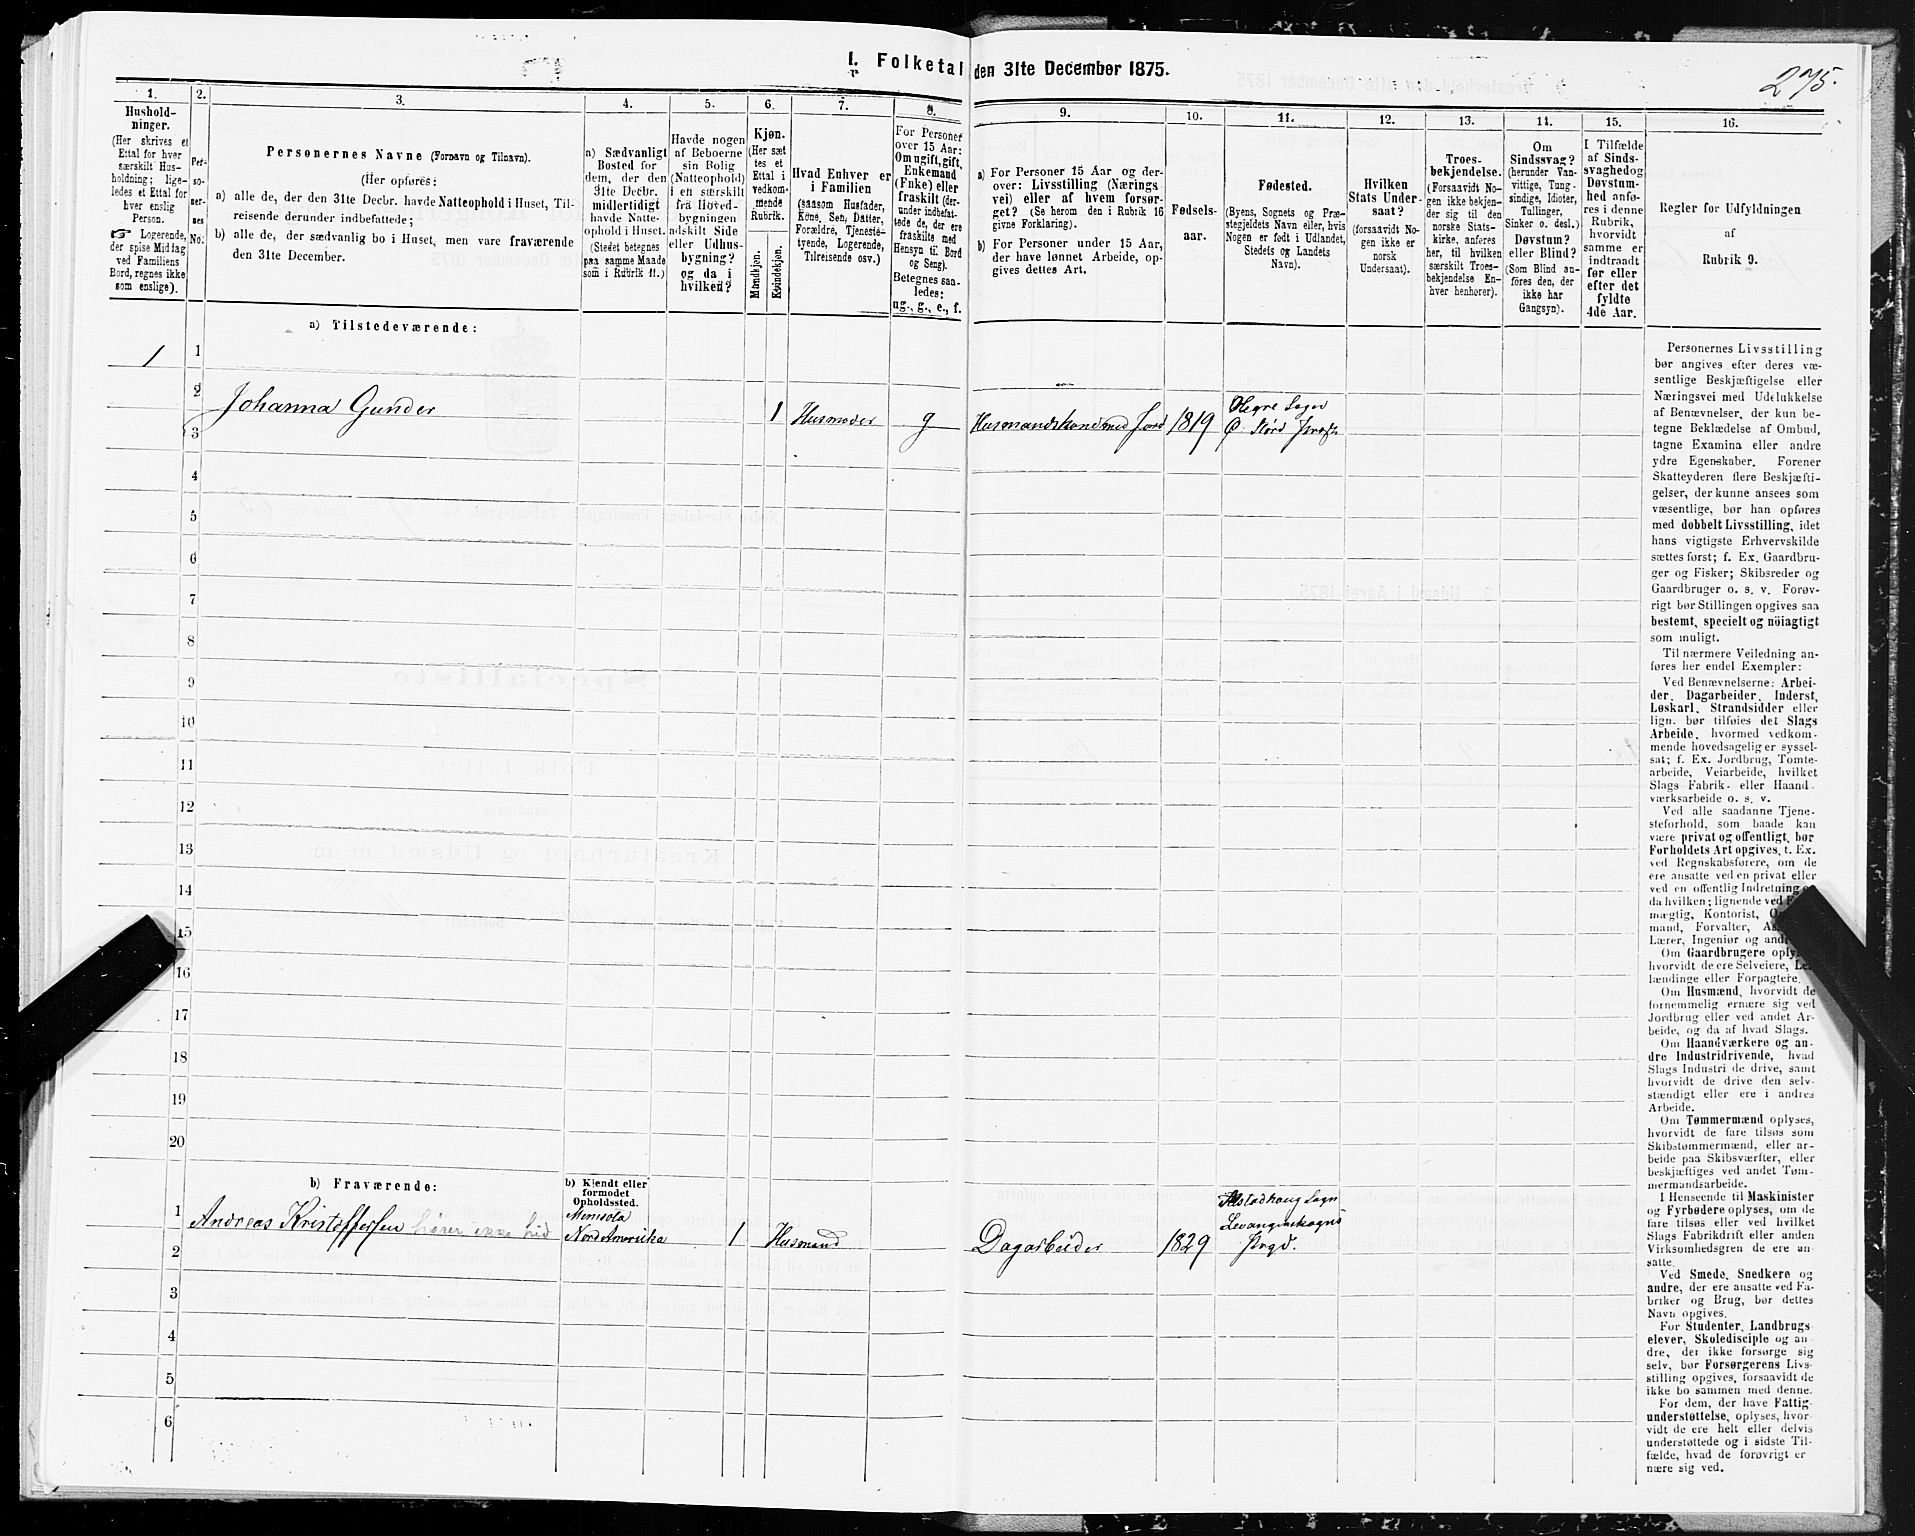 I. Folketal den 31te December 1875.
275.
1.
Hushold-
ninger.
(Her skrives et
Ettal for hver
særskilt Hus-
holdning; lige-
ledes et Ettal for
hver enslig
Person.
☞ Logerende,
der spise Middag
ved Familiens
Bord, regnes ikke
som enslige).
2.
Per-
so-
ner-
nes
No.
3.
Personernes Navne (Fornavn og Tilnavn).
(Her opføres:
a) alle de, der den 31te Decbr. havde Natteophold i Huset, Til-
reisende derunder indbefattede;
b) alle de, der sædvanlig bo i Huset, men vare fraværende
den 31te December.
4.
a) Sædvanligt
Bosted for
dem, der den
31te Decbr.
midlertidigt
havde Natte-
ophold i Huset.
(Stedet betegnes
paa samme Maade
som i Rubrik 11.)
5.
Havde nogen
af Beboerne
sin Bolig
(Natteophold)
i en særskilt
fra Hoved-
bygningen
adskilt Side
eller Udhus-
bygning?
og da i
hvilken?
6.
Kjøn.
(Her sæt-
tes et
Ettal i
vedkom-
mende
Rubrik.
Mandkjøn.
Kvindekjøn.
7.
Hvad Enhver er
i Familien
(saasom Husfader,
Kone, Søn, Datter,
Forældre, Tjeneste-
tyende, Logerende,
Tilreisende osv.)
8.
For Personer
over 15 Aar:
Om ugift, gift,
Enkemand
(Enke) eller
fraskilt (der-
under indbefat-
tede de, der ere
fraskilte med
Hensyn til Bord
og Seng).
Betegnes saa-
ledes:
ug., g., e., f.
9.
a) For Personer 15 Aar og der-
over: Livsstilling (Nærings
vei) eller af hvem forsør-
get? (Se herom den i Rubrik 16
givne Forklaring).
b) For Personer under 15 Aar,
der have lønnet Arbeide, op-
gives dettes Art.
10.
Fødsels-
aar.
11.
Fødested.
(Byens, Sognets og Præ-
stegjeldets Navn eller, hvis
Nogen er født i Udlandet,
Stedets og Landets
Navn).
12.
Hvilken
Stats Under-
saat?
(forsaavidt No-
gen ikke er
norsk
Undersaat).
13.
Troes-
bekjendelse.
(Forsaavidt No-
gen ikke bekjen-
der sig til den
norske Stats-
kirke, anføres
her, til hvilken
særskilt Troes-
bekjendelse En-
hver henhører).
14.
Om
Sindssvag?
(herunder Van-
vittige, Tung-
sindige, Idioter,
Tullinger,
Sinker o. desl.)
Døvstum?
eller Blind?
(Som Blind an-
føres den, der
ikke har
Gangsyn).
15.
I Tilfælde
af Sinds-
svaghed og
Døvstum-
hed anfø-
res i denne
Rubrik,
hvorvidt
samme er
indtraadt
før eller
efter det
fyldte
4de Aar.
16.
Regler for Udfyldningen
af
Rubrik 9.
a) Tilstedeværende:
1
1
2
3
Johanna Gunder 1 Husmoder g Husmandskone med Jord 1819 Hegre Sogn
Ø. Størd Præstg.
4
5
6
7
8
9
10
11
12
13
14
15
16
17
18
19
20
b) Fraværende:
b) Kjendt eller
formodet
Opholdssted.
1
Andreas Kristoffersen hører ikke hid
Menisola
Nord Amerika 1 Husmand Dagarbeider 1829
Alstadhaug Sogn
Levangerskogns
Prgd.
2
3
4
5
6
Personernes Livsstilling
bør angives efter deres væ-
sentlige Beskjæftigelse eller
Næringsvei med Udelukkelse
af Benævnelser, der kun be-
tegne Beklædelse af Ombud,
tagne Examina eller andre
ydre Egenskaber. Forener
Skatteyderen flere Beskjæfti-
gelser, der kunne ansees som
væsentlige, bør han opføres
med dobbelt Livsstilling, idet
hans vigtigste Erhvervskilde
sættes først; f. Ex. Gaardbru-
ger og Fisker; Skibsreder og
Gaardbruger o. s. v. Forøv-
rigt bør Stillingen opgives saa
bestemt, specielt og nöiagtigt
som muligt.
Til nærmere Veiledning an-
føres her endel Exempler:
Ved Benævnelserne: Arbei-
der, Dagarbeider, Inderst,
Løskarl, Strandsidder eller
lign. bør tilføies det Slags
Arbeide, hvormed vedkom-
mende hovedsagelig er syssel-
sat; f. Ex. Jordbrug, Tomte-
arbeide, Veiarbeide, hvilket
Slags Fabrik- eller Haand-
værksarbeide o. s. v.
Ved alle saadanne Tjene-
steforhold, som baade kan
være privat og offentligt, bør
Forholdets Art opgives, t. Ex.
ved Regnskabsførere, om de
ere ansatte ved en privat eller
ved en offentlig Indretning
da hvilken; lignende ved
mægtig, Kontorist,
mand, Forvalter,
Lærer, Ingeniør og
Om Gaardbrugere
hvorvidt de ere Selveiere,
lændinge eller Forpagtere.
Om Husmænd, hvorvidt de
fornemmelig ernære sig ved
Jordbrug eller ved andet Ar-
beide, og da af hvad Slags.
Om Haandværkere og an-
dre Industridrivende, hvad
Slags Industri de drive, samt
hvorvidt de drive den selv-
stændigt eller ere i andres
Arbeide.
Om Tømmermænd oplyses,
hvorvidt de fare tilsøs som
Skibstømmermænd, eller ar-
beide paa Skibsværfter, eller
beskjæftiges ved andet Tøm-
mermandsarbeide.
I Henseende til Maskinister
og Fyrbødere oplyses, om de
fare tilsøs eller ved hvilket
Slags Fabrikdrift eller anden
Virksomhedsgren de ere an-
satte.
Ved Smede, Snedkere og
andre, der ere ansatte ved Fa-
briker og Brug, bør dettes
Navn opgives.
For Studenter, Landbrugs
elever, Skoledisciple og an-
dre, der ikke forsørge sig
selv, bør Forsørgerens Livs-
stilling opgives, forsaavidt de
ikke bo sammen med denne.
For dem, der have Fattig-
understøttelse, oplyses, hvor-
vidt de ere helt eller delvis
understøttede og i sidste Til-
fælde, hvad de forøvrigt er
nære sig ved.